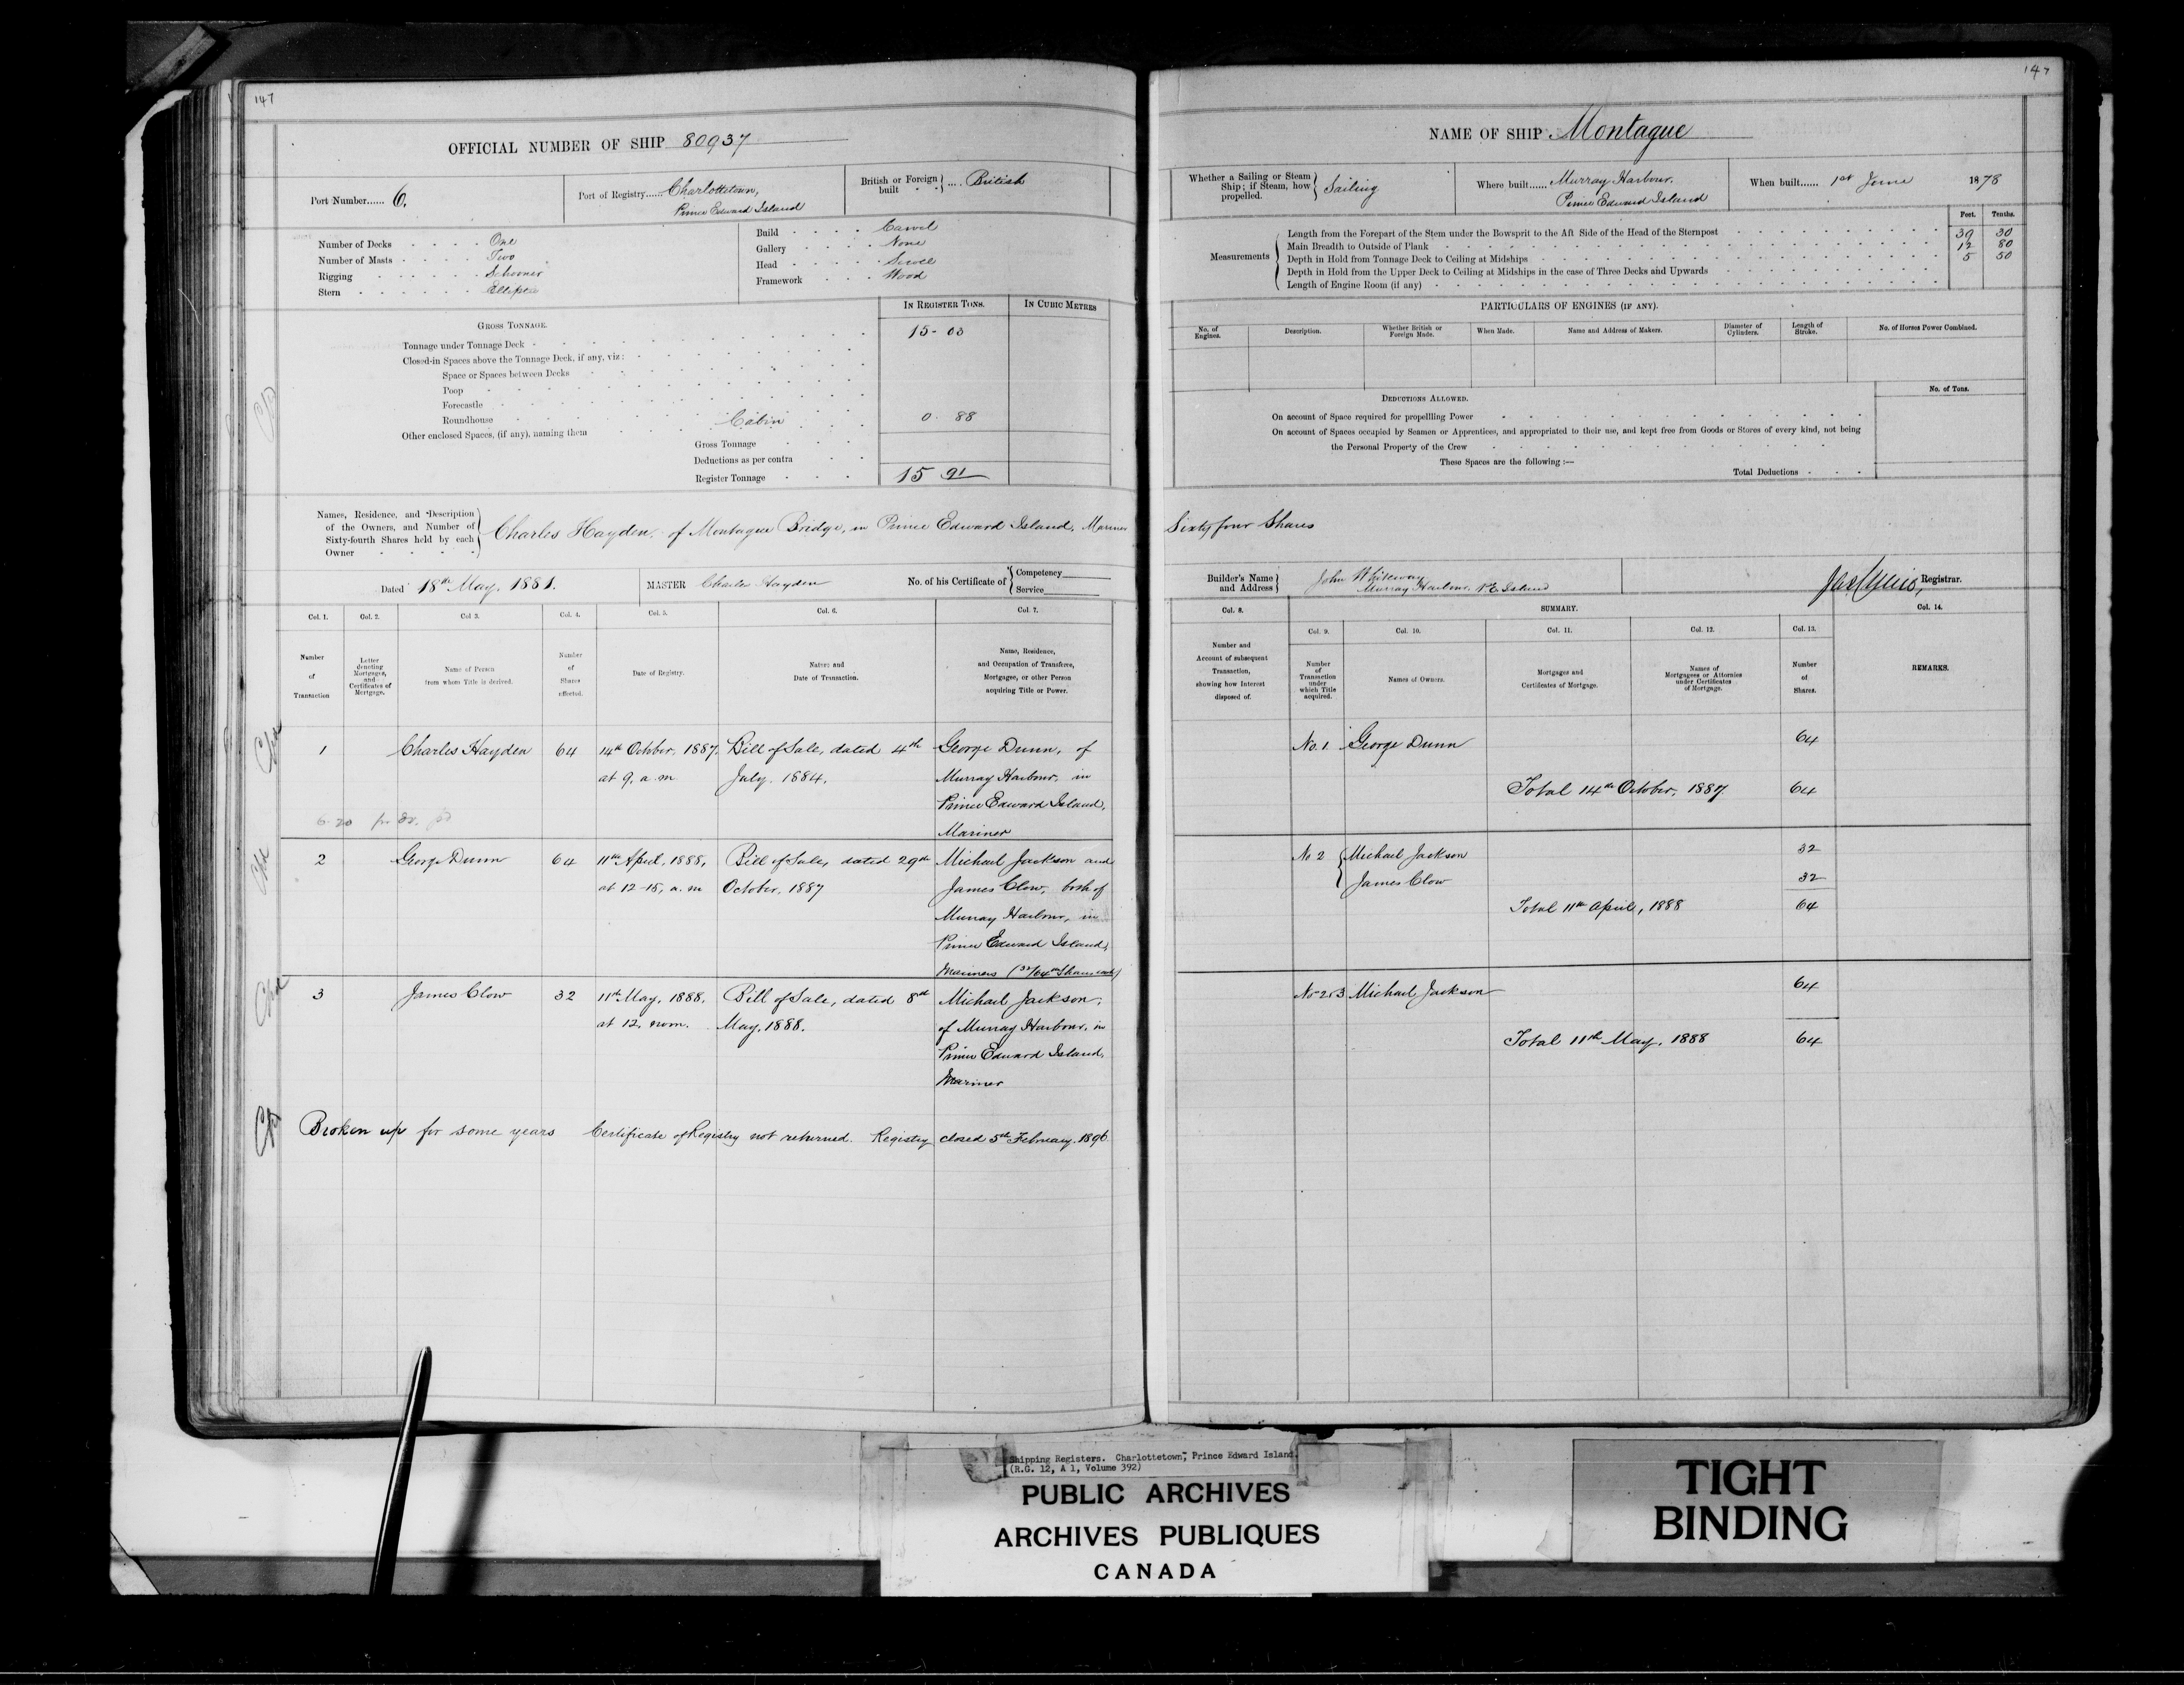 147
OFFICIAL NUMBER OF SHIP 80937
Port Number...... 6.
Port of Registry...... Charlottetown,
Prince Edward Island
British or Foreign built .... British
Number of Decks One
Number of Masts Two
Rigging Schooner
Stern Elliptic
Build Carvel
Gallery None
Head Scroll
Framework Wood
IN REGISTER TONS.
IN CUBIC METRES
GROSS TONNAGE.
Tonnage under Tonnage Deck 15-03
Closed-in Spaces above the Tonnage Deck, if any, viz:
Space or Spaces between Decks
Poop
Forecastle
Roundhouse
Other enclosed Spaces, (if any), naming them Cabin 0. 88
Gross Tonnage
Deductions as per contra
Register Tonnage 15 91
Names, Residence, and Description
of the Owners, and Number of
Sixty-fourth Shares held by each
Owner
Charles Hayden, of Montague Bridge, in Prince Edward Island, Mariner
Dated 18th May, 1881.
MASTER Charles Hayden
No. of his Certificate of
Competency
Service
Col. 1.
Col. 2.
Col 3.
Col. 4.
Col. 5.
Col. 6.
Col. 7.
Number
of
Transaction
Letter
denoting
Mortgages,
and
Certificates of
Mortgage.
Name of Person
from whom Title is derived.
Number
of
Shares
effected.
Date of Registry.
Nature and
Date of Transaction.
Name, Residence,
and Occupation of Transferee,
Mortgagee, or other Person
acquiring Title or Power.
1 Charles Hayden 64 14th October, 1887. Bill of Sale, dated 4th George Dunn, of
at 9, a.m July. 1884. Murray Harbour, in
Prince Edward Island,
Mariner
2 George Dunn 64 11th April, 1888, Bill of Sale, dated 29th Michael Jackson and
at 12-15, a.m October, 1887 James Clow, both of
Murray Harbour, in
Prince Edward Island,
Mariners (32/64th Shares each)
3 James Clow 32 11th May, 1888. Bill of Sale, dated 8th Michael Jackson,
at 12, noon. May, 1888. of Murray Harbour, in
Prince Edward Island,
Mariner
Broken up for some years Certificate of Registry not returned. Registry closed 5th February. 1896
147
NAME OF SHIP Montague
Whether a Sailing or Steam
Ship; if Steam, how
propelled.
Sailing
Where built...... Murray Harbour.
Prince Edward Island
When built...... 1st June 1878
Feet. Tenths.
Measurements
Length from the Forepart of the Stem under the Bowsprit to the Aft Side of the Head of the Sternpost 39 30
Main Breadth to Outside of Plank 12 80
Depth in Hold from Tonnage Deck to Ceiling at Midships 5 50
Depth in Hold from the Upper Deck to Ceiling at Midships in the case of Three Decks and Upwards
Length of Engine Room (if any)
PARTICULARS OF ENGINES (IF ANY).
No. of
Engines.
Description.
Whether British or
Foreign Made.
When Made.
Name and Address of Makers.
Diameter of
Cylinders.
Length of
Stroke.
No. of Horses Power Combined.
DEDUCTIONS ALLOWED.
No. of Tons.
On account of Space required for propellling Power
On account of Spaces occupied by Seamen or Apprentices, and appropriated to their use, and kept free from Goods or Stores of every kind, not being
the Personal Property of the Crew
These Spaces are the following :—
Total Deductions
Sixty four Shares
Builder's Name
and Address
John Whiteway
Murray Harbour. P.E. Island
Registrar.
Col. 8.
SUMMARY.
Col. 14.
Col. 9.
Col. 10.
Col. 11.
Col. 12.
Col. 13.
Number and
Account of subsequent
Transaction,
showing how Interest
disposed of.
Number
of
Transaction
under
which Title
acquired.
Names of Owners.
Mortgages and
Certificates of Mortgage.
Names of
Mortgagees or Attornies
under Certificates
of Mortgage.
Number
of
Shares.
REMARKS.
No. 1. George Dunn 64
Total 14th October, 1887. 64
No 2 Michael Jackson 32
James Clow 32
Total 11th April, 1888 64
No 2&3 Michael Jackson 64
Total 11th May. 1888 64
Shipping Registers. Charlottetown, Prince Edward Island.
(R.G. 12, A 1, Volume 392)
PUBLIC ARCHIVES
ARCHIVES PUBLIQUES
CANADA
TIGHT
BINDING